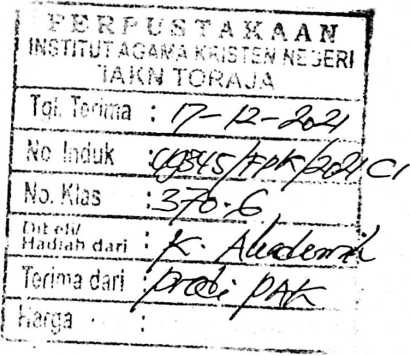 PERPUSTAKAAN
INSTITUT AGAMA KRISTEN NEGERI
IAKN TORAJA
Tgl. Terima : 17-12-2021
No Induk : 49845/FPK/2021 C1
No. Klas : 370.6
Dibeli/
Hadiah dari : K. Akademik
Terima dari : prodi PAK
Harga :